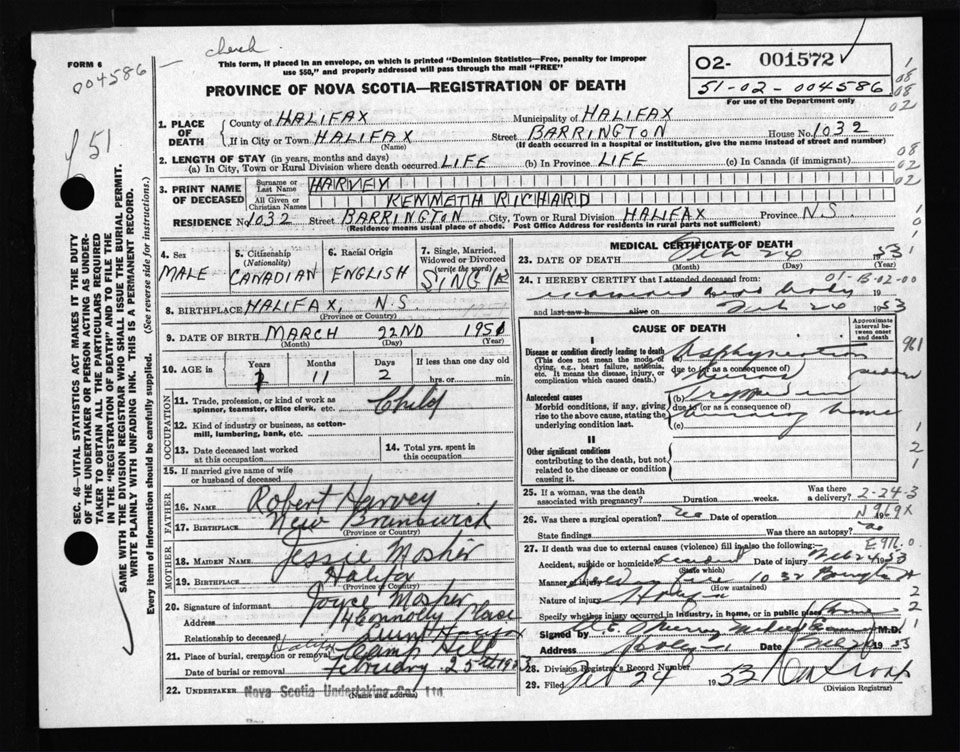 check
FORM 6
004586 —
This form, if placed in an envelope, on which is printed "Dominion Statistics—Free, penalty for improper
use $50," and properly addressed will pass through the mail "FREE"
O2- 001572
51-02-004586
For use of the Department only
PROVINCE OF NOVA SCOTIA—REGISTRATION OF DEATH
1. PLACE OF DEATH
County of HALIFAX Municipality of HALIFAX
If in City or Town HALIFAX Street BARRINGTON House No. 1032
(Name) (If death occurred in a hospital or institution, give the name instead of street and number)
2. LENGTH OF STAY (in years, months and days)
(a) In City, Town or Rural Division where death occurred LIFE (b) In Province LIFE (c) In Canada (if immigrant)
3. PRINT NAME OF DECEASED
Surname or Last Name HARVEY
All Given or Christian Names KENNETH RICHARD
RESIDENCE No. 1032 Street BARRINGTON City, Town or Rural Division HALIFAX Province N.S.
(Residence means usual place of abode. Post Office Address for residents in rural parts not sufficient)
4. Sex MALE
5. Citizenship (Nationality) CANADIAN
6. Racial Origin ENGLISH
7. Single, Married, Widowed or Divorced (write the word) SINGLE
8. BIRTHPLACE HALIFAX, N.S.
(Province or Country)
9. DATE OF BIRTH MARCH 22ND 1951
(Month) (Day) (Year)
10. AGE in Years 1 Months 11 Days 2 If less than one day old hrs. or min.
OCCUPATION
11. Trade, profession, or kind of work as spinner, teamster, office clerk, etc. Child
12. Kind of industry or business, as cotton-mill, lumbering, bank, etc.
13. Date deceased last worked at this occupation
14. Total yrs. spent in this occupation
15. If married give name of wife or husband of deceased
FATHER
16. NAME Robert Harvey
17. BIRTHPLACE New Brunswick
(Province or Country)
MOTHER
18. MAIDEN NAME Jessie Mosher
19. BIRTHPLACE Halifax
(Province or Country)
20. Signature of informant Joyce Mosher
Address Connolly Place
Relationship to deceased Aunt Halifax
21. Place of burial, cremation or removal Camp Hill
Date of burial or removal February 25th 1953
22. UNDERTAKER Nova Scotia Undertaking Co. Ltd.
(Name and address)
MEDICAL CERTIFICATE OF DEATH
23. DATE OF DEATH Feb 24 1953
(Month) (Day) (Year)
24. I HEREBY CERTIFY that I attended deceased from: 01-B-02-00
examined dead body 19
and last saw h alive on Feb 24 1953
CAUSE OF DEATH
Approximate interval between onset and death
I
Disease or condition directly leading to death (a) Asphyxiation
(This does not mean the mode of dying, e.g., heart failure, asthenia, etc. It means the disease, injury, or complication which caused death.)
due to (or as a consequence of)
Antecedent causes (b) Trapped in
Morbid conditions, if any, giving rise to the above cause, stating the underlying condition last.
due to (or as a consequence of)
burning home
(c)
II
Other significant conditions
contributing to the death, but not related to the disease or condition causing it.
25. If a woman, was the death associated with pregnancy? Duration weeks. Was there a delivery? 2-24-3
26. Was there a surgical operation? no Date of operation 19 N 969X
State findings Was there an autopsy? no
27. If death was due to external causes (violence) fill in also the following:— E 916.0
Accident, suicide or homicide? Accident Date of injury Feb 24 1953
(State which)
Manner of injury fire 1032 Barrington St
(How sustained)
Nature of injury
Specify whether injury occurred in industry, in home, or in public place home
Signed by Murray Medical Examiner M.D.
Address Halifax Date Feb 1953
28. Division Registrar's Record Number
29. Filed Feb 24 1953
(Division Registrar)
SEC. 46—VITAL STATISTICS ACT MAKES IT THE DUTY OF THE UNDERTAKER OR PERSON ACTING AS UNDERTAKER TO OBTAIN ALL THE PARTICULARS REQUIRED IN THE "REGISTRATION OF DEATH" AND TO FILE THE SAME WITH THE DIVISION REGISTRAR WHO SHALL ISSUE THE BURIAL PERMIT.
WRITE PLAINLY WITH UNFADING INK. THIS IS A PERMANENT RECORD.
Every item of information should be carefully supplied. (See reverse side for instructions.)